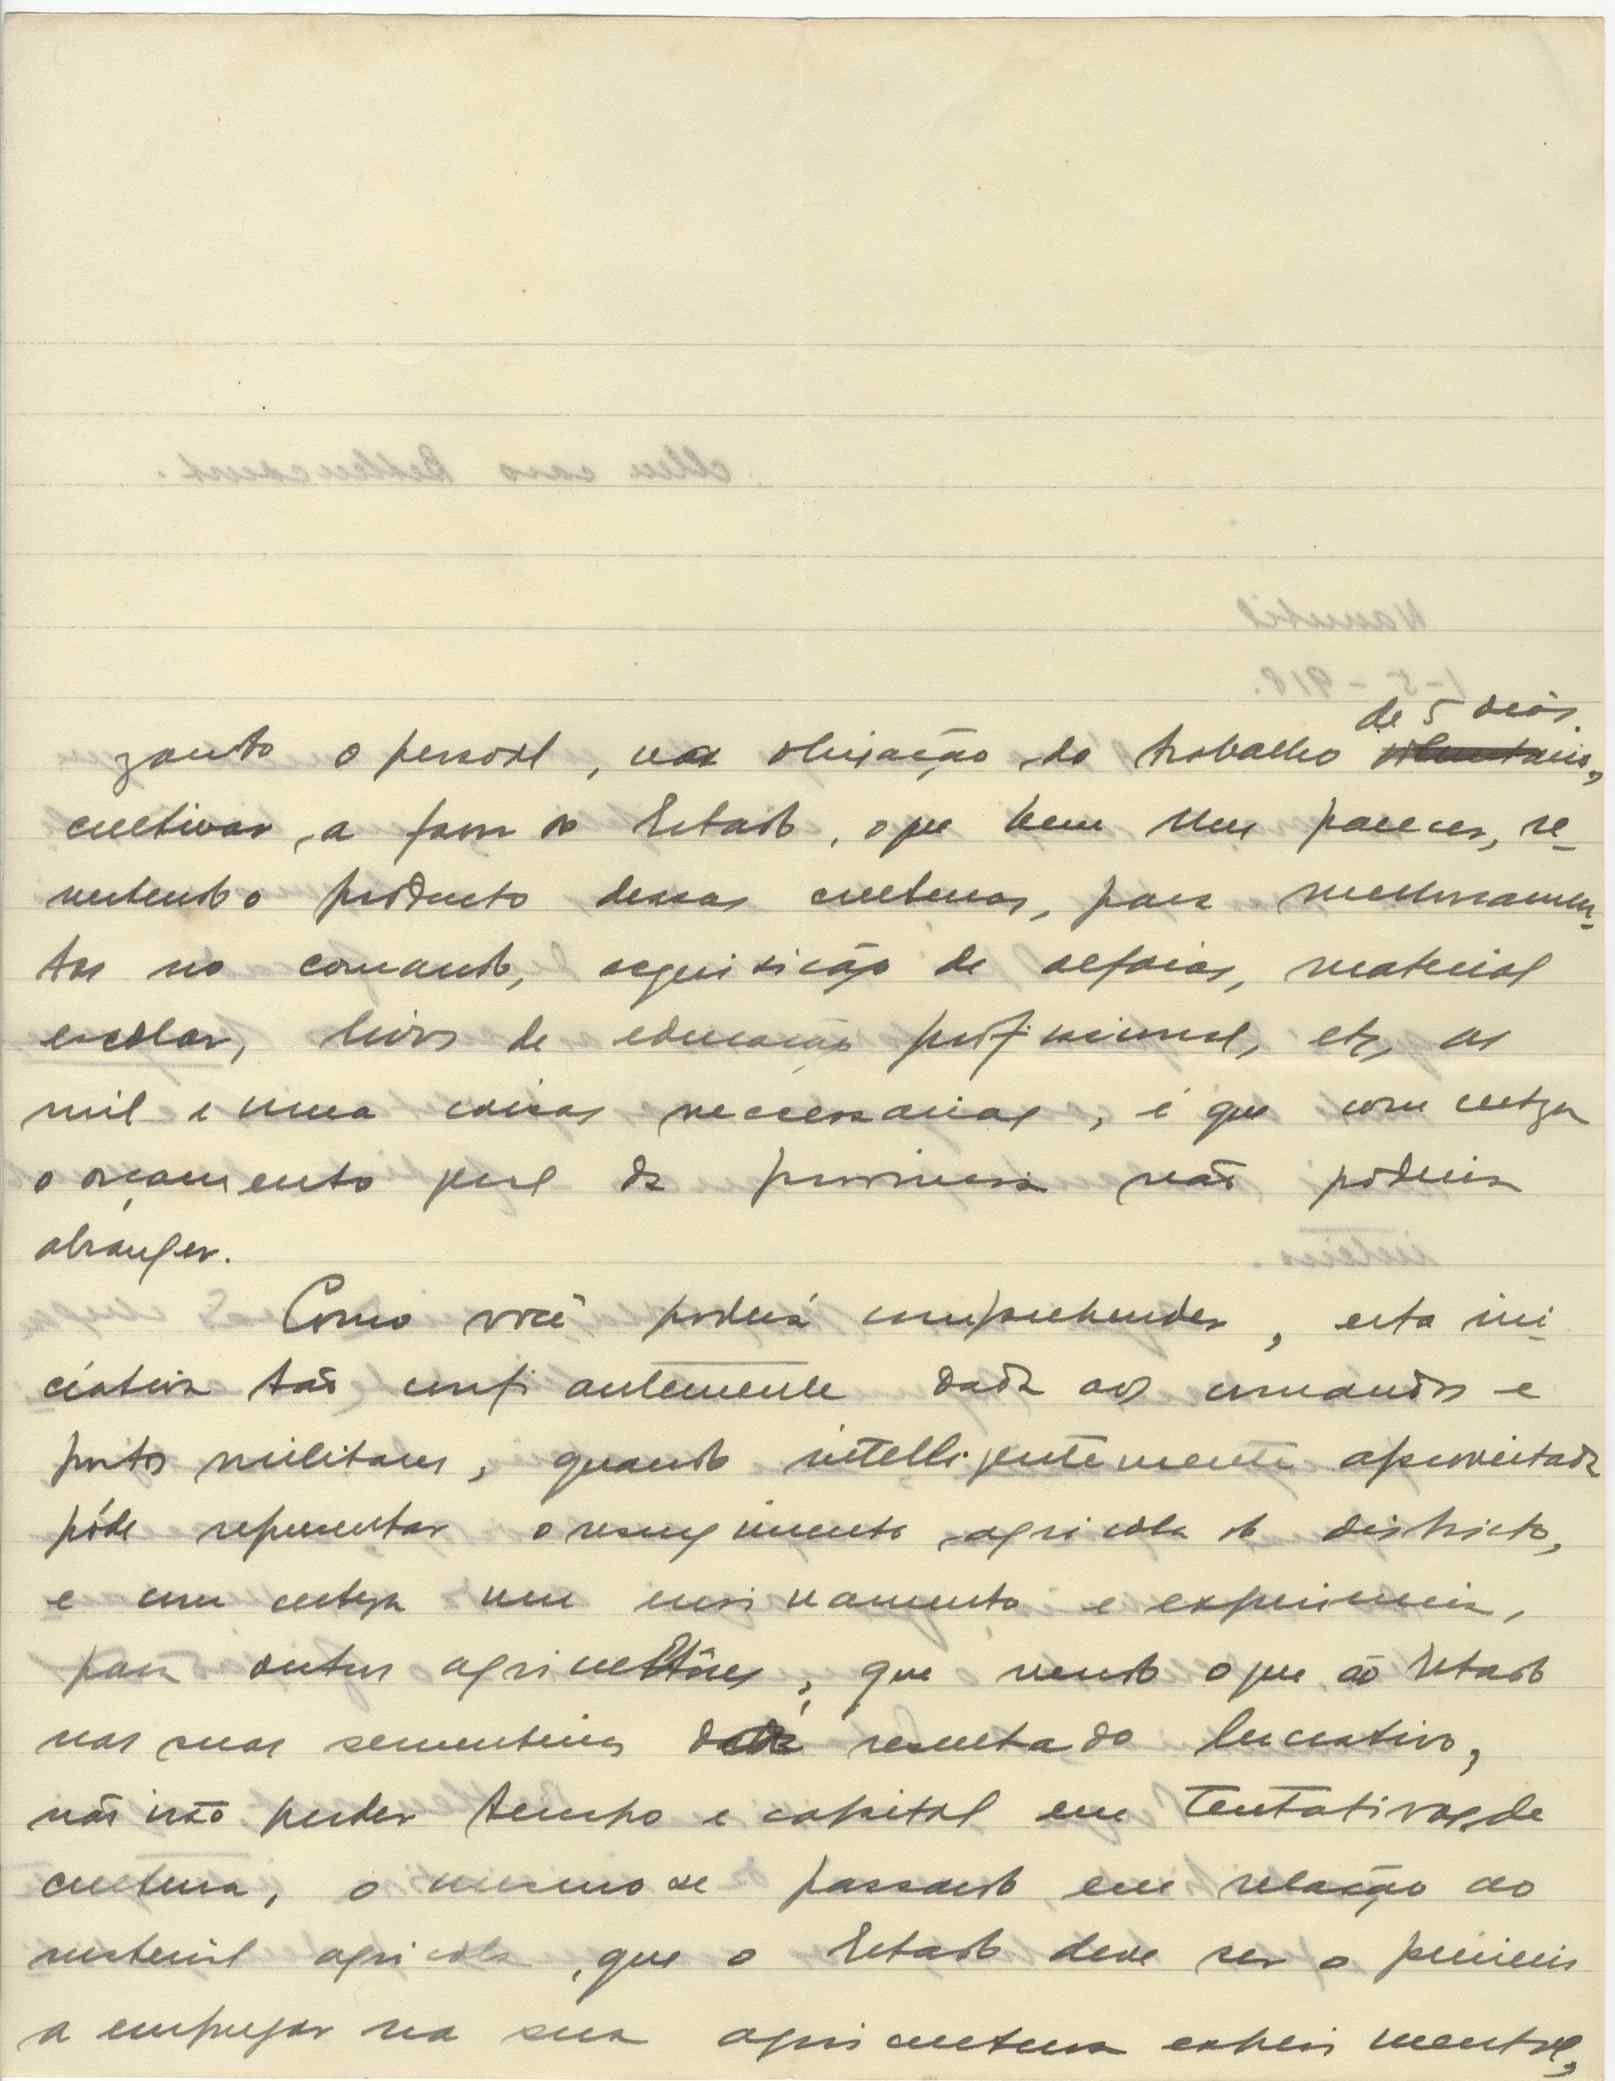 de 5 dias
zando o pessoal, na obrigação do trabalho voluntario,
cultivar a favor do Estado, o que bem lhes parecer, re-
vertendo o producto dessas culturas, para melhoramen-
tos no comando, acquisição de alfaias, material
escolar, livros de educação profissional, etc, as
mil e uma coisas necessarias, e que com certeza
o orçamento geral da provincia não poderia
abranger.
Como você poderá comprehender, esta ini-
ciativa tão confiantemente dada aos comandos e
postos militares, quando intelligentemente aproveitada
póde representar o resurgimento agricola do districto,
e com certeza um ensinamento e experiencia,
para outros agricultôres, que vendo o que ao Estado
nas suas sementeiras dá resultado lucrativo,
não irão perder tempo e capital em tentativas de
cultura, o mesmo se passando em relação ao
material agricola, que o Estado deve ser o primeiro
a empregar na sua agricultura experimental,